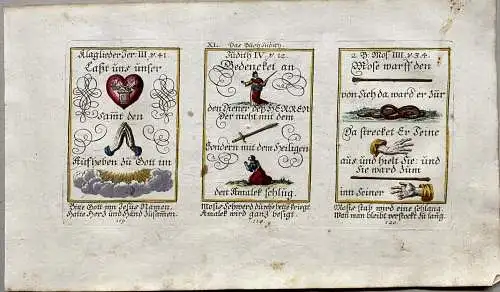 XI. Das Buch Judith.
Klaglieder Jer. III. v. 41.
Laßt uns unser
Samt den
Aufheben zu Gott im
Bitte Gott im Jesus Namen,
Halte Herz und Hand zusamen.
119.
Judith IV. v. 12.
Gedencket an
den Diener des HERREN
Der nicht mit dem
Sondern mit dem Heiligen
den Amalek schlug.
Mosis Schwerd durchs bette kriegt
Amalek wird gantz besigt.
2. B. Mos. IIII. v. 3.4.
Mose warff den
von sich da ward er zur
Da strecket Er seine
aus und hielt Sie: und
Sie ward zum
inn Seiner
Mosis stab wird eine schlang.
Wan man bleibt verstockt zu lang.
120.